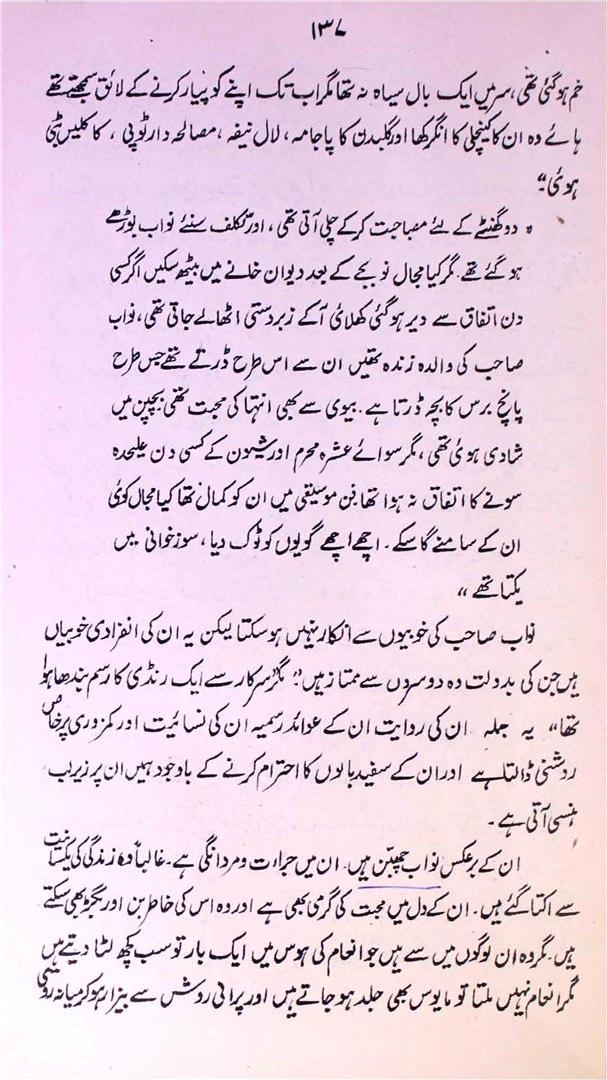 ۱۳۷
خم ہو گئی تھی، سر میں ایک بال سیاہ نہ تھا مگر اب تک اپنے کو پیار کرنے کے لائق سمجھتے تھے
ہائے وہ ان کا کینچلی کا انگرکھا اور گلبدن کا پاجامہ، لال نیفہ، مصالحہ دار ٹوپی، کاکلیں بٹی
ہوئی۔"
"دو گھنٹے کے لئے مصاحبت کرکے چلی آتی تھی، اور تکلف سنئے نواب بوڑھے
ہو گئے تھے۔ مگر کیا مجال نو بجے کے بعد دیوان خانے میں بیٹھ سکیں اگر کسی
دن اتفاق سے دیر ہو گئی کھلائی آکے زبردستی اٹھا لے جاتی تھی، نواب
صاحب کی والدہ زندہ تھیں ان سے اس طرح ڈرتے تھے جس طرح
پانچ برس کا بچہ ڈرتا ہے۔ بیوی سے بھی انتہا کی محبت تھی بچپن میں
شادی ہوئی تھی، مگر سوائے عشرہ محرم اور شیون کے کسی دن علیحدہ
سونے کا اتفاق نہ ہوا تھا۔ فن موسیقی میں ان کو کمال تھا کیا مجال کوئی
ان کے سامنے گا سکے۔ اچھے اچھے گویوں کو ٹوک دیا، سوز خوانی میں
یکتا تھے"
نواب صاحب کی خوبیوں سے انکار نہیں ہو سکتا لیکن یہ ان کی انفرادی خوبیاں
ہیں جن کی بدولت وہ دوسروں سے ممتاز ہیں" مگر سرکار سے ایک رنڈی کا رسم بندھا ہوا
تھا" یہ جملہ ان کی روایت ان کے عوائد رسمیہ ان کی نسائیت اور کمزوری پر خاص
روشنی ڈالتا ہے اور ان کے سفید بالوں کا احترام کرنے کے باوجود ہمیں ان پر زیر لب
ہنسی آتی ہے۔
ان کے برعکس نواب چھبن ہیں۔ ان میں جراءت و مردانگی ہے۔ غالباً وہ زندگی کی یکسانیت
سے اکتا گئے ہیں۔ ان کے دل میں محبت کی گرمی بھی ہے اور وہ اس کی خاطر بن اور بگڑ بھی سکتے
ہیں۔ مگر وہ ان لوگوں میں سے ہیں جو انعام کی ہوس میں ایک بار تو سب کچھ لٹا دیتے ہیں
مگر انعام نہیں ملتا تو مایوس بھی جلد ہو جاتے ہیں اور پرانی روش سے بیزار ہو کر میانہ روی